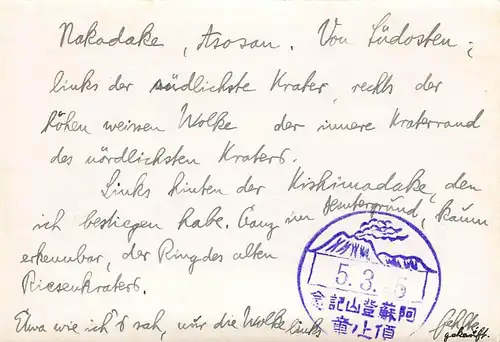 Nakadake, Asosan. Von Südosten;
links der südlichste Krater, rechts der
hohen weissen Wolke der innere Kraterrand
des nördlichsten Kraters.
Links hinten der Kishimadake, den
ich bestiegen habe. Ganz im Hintergrund, kaum
erkennbar, der Ring des alten
Riesenkraters.
Etwa wie ich's sah, nur die Wolke links
gekauft.
5.3.
阿蘇登山記念
頂上